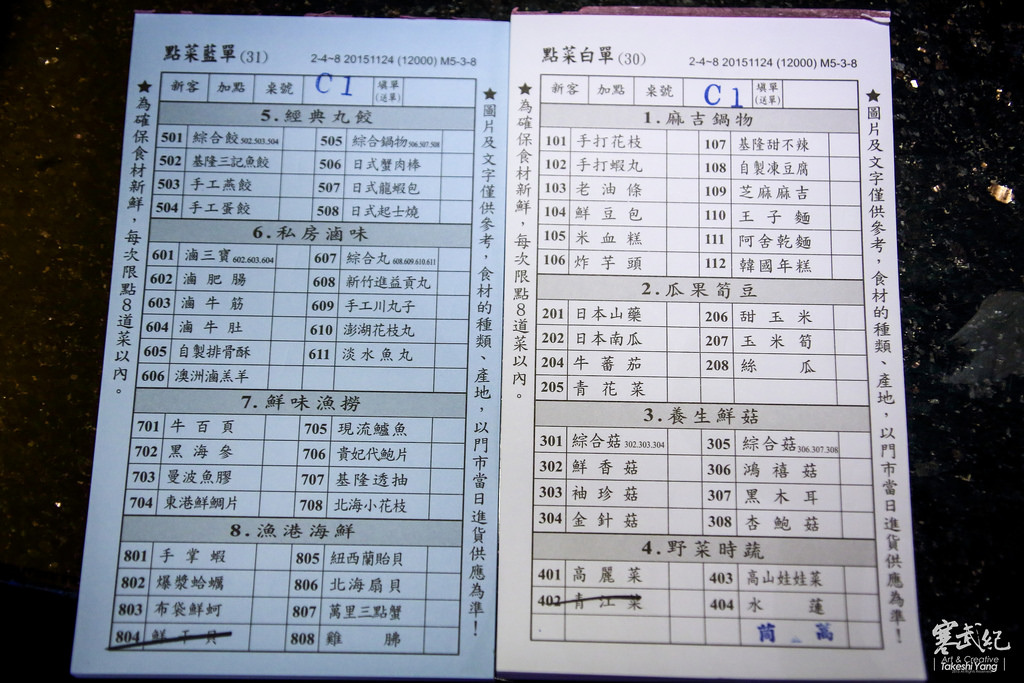 點菜藍單(31)
2-4~8 20151124 (12000) M5-3-8
新客 加點 桌號 C1 填單(送單)
★為確保食材新鮮，每次限點8道菜以內。
5.經典丸餃
501 綜合餃502.503.504 505 綜合鍋物506.507.508
502 基隆三記魚餃 506 日式蟹肉棒
503 手工燕餃 507 日式龍蝦包
504 手工蛋餃 508 日式起士燒
6.私房滷味
601 滷三寶602.603.604 607 綜合丸608.609.610.611
602 滷肥腸 608 新竹進益貢丸
603 滷牛筋 609 手工川丸子
604 滷牛肚 610 澎湖花枝丸
605 自製排骨酥 611 淡水魚丸
606 澳洲滷羔羊
7.鮮味漁撈
701 牛百頁 705 現流鱸魚
702 黑海參 706 貴妃代鮑片
703 曼波魚膠 707 基隆透抽
704 東港鮮鯛片 708 北海小花枝
8.漁港海鮮
801 手掌蝦 805 紐西蘭貽貝
802 爆漿蛤蠣 806 北海扇貝
803 布袋鮮蚵 807 萬里三點蟹
804 鮮干貝 808 雞腨
★圖片及文字僅供參考，食材的種類、產地，以門市當日進貨供應為準！
點菜白單(30)
2-4~8 20151124 (12000) M5-3-8
新客 加點 桌號 C1 填單(送單)
★為確保食材新鮮，每次限點8道菜以內。
1.麻吉鍋物
101 手打花枝 107 基隆甜不辣
102 手打蝦丸 108 自製凍豆腐
103 老油條 109 芝麻麻吉
104 鮮豆包 110 王子麵
105 米血糕 111 阿舍乾麵
106 炸芋頭 112 韓國年糕
2.瓜果筍豆
201 日本山藥 206 甜玉米
202 日本南瓜 207 玉米筍
204 牛蕃茄 208 絲瓜
205 青花菜
3.養生鮮菇
301 綜合菇302.303.304 305 綜合菇306.307.308
302 鮮香菇 306 鴻禧菇
303 袖珍菇 307 黑木耳
304 金針菇 308 杏鮑菇
4.野菜時蔬
401 高麗菜 403 高山娃娃菜
402 青江菜 404 水蓮
茼 萬
★圖片及文字僅供參考，食材的種類、產地，以門市當日進貨供應為準！
寒武紀
Art & Creative
Takeshi Yang